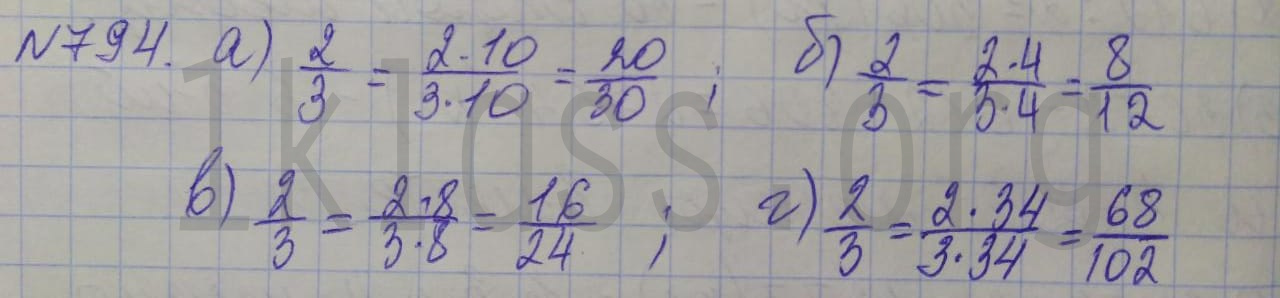 №794. а) 2/3 = 2·10/3·10 = 20/30 ; б) 2/3 = 2·4/3·4 = 8/12
в) 2/3 = 2·8/3·8 = 16/24 ; г) 2/3 = 2·34/3·34 = 68/102
1klass.org